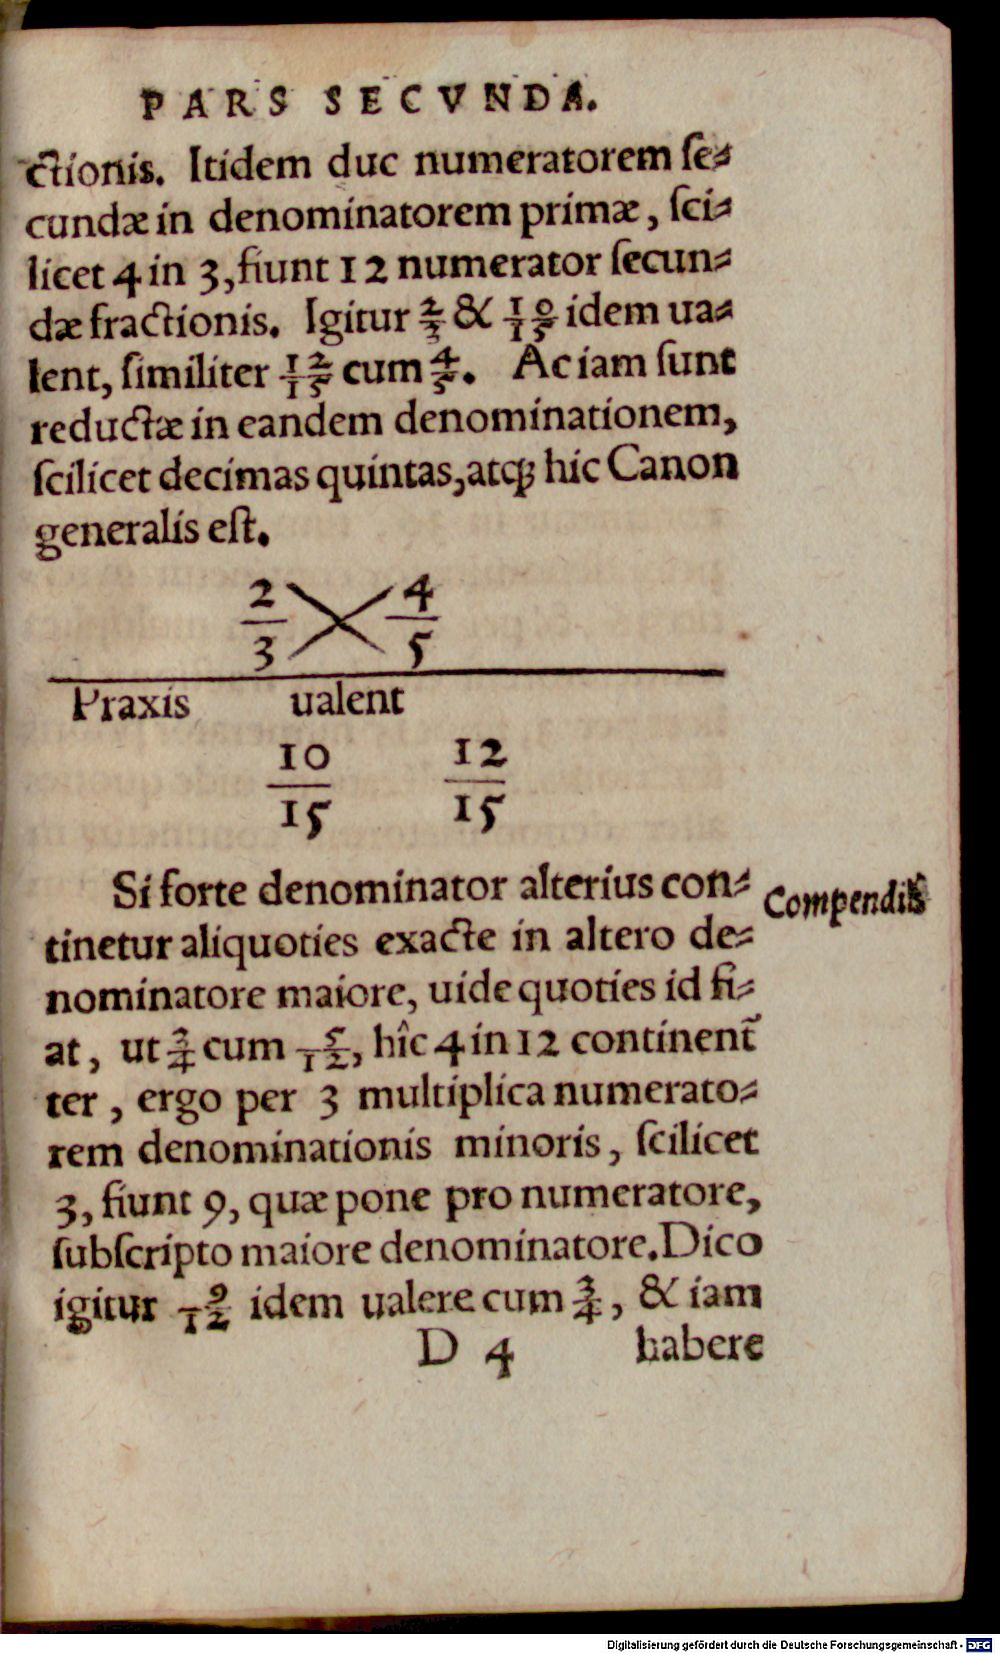 PARS SECVNDA.
ctionis. Itidem duc numeratorem ſe⸗
cundæ in denominatorem primæ, ſci⸗
licet 4 in 3, fiunt 12 numerator ſecun⸗
dæ fractionis. Igitur 2/3 & 10/15 idem ua⸗
lent, ſimiliter 12/15 cum 4/5. Ac iam ſunt
reductæ in eandem denominationem,
ſcilicet decimas quintas, atq; hic Canon
generalis eſt.
2/3 4/5
Praxis ualent
10/15 12/15
Si forte denominator alterius con⸗
tinetur aliquoties exacte in altero de⸗
nominatore maiore, uide quoties id fi⸗
at, ut 3/4 cum 5/12, hîc 4 in 12 continent̃
ter, ergo per 3 multiplica numerato⸗
rem denominationis minoris, ſcilicet
3, fiunt 9, quæ pone pro numeratore,
ſubſcripto maiore denominatore. Dico
igitur 9/12 idem ualere cum 3/4, & iam
D 4 habere
Digitalisierung gefördert durch die Deutsche Forschungsgemeinschaft - DFG